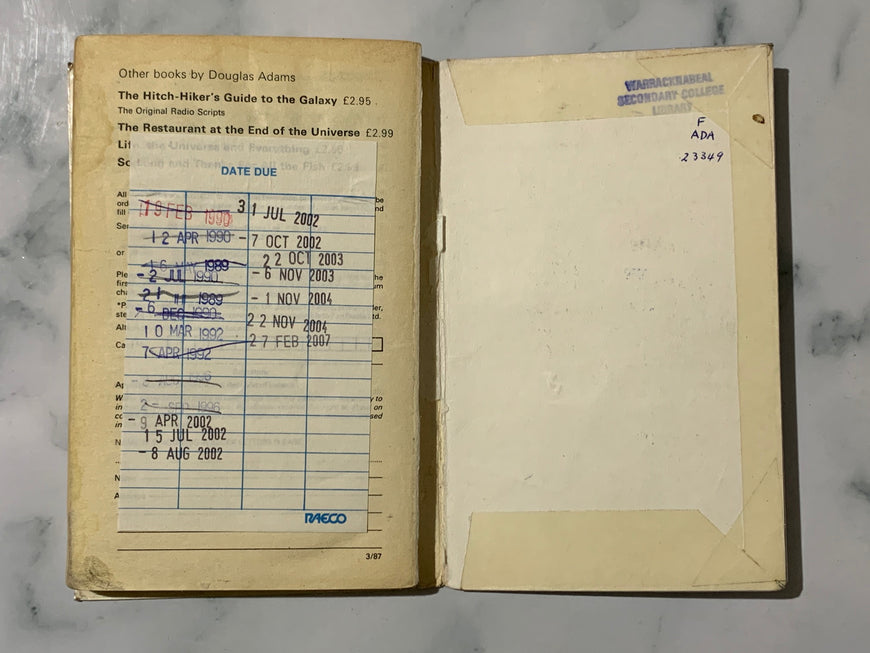 Other books by Douglas Adams
The Hitch-Hiker's Guide to the Galaxy £2.95
The Original Radio Scripts
The Restaurant at the End of the Universe £2.99
Life, the Universe and Everything
So Long and Thanks for All the Fish
DATE DUE
19 FEB 1990
12 APR 1990
1989
- 2 JUL 1990
21 1989
- 6 DEC 1990
10 MAR 1992
7 APR 1992
2 - SEP 1996
- 9 APR 2002
15 JUL 2002
- 8 AUG 2002
31 JUL 2002
- 7 OCT 2002
22 OCT 2003
- 6 NOV 2003
- 1 NOV 2004
22 NOV 2004
27 FEB 2007
RAECO
3/87
WARRACKNABEAL
SECONDARY COLLEGE
LIBRARY
F
ADA
23349